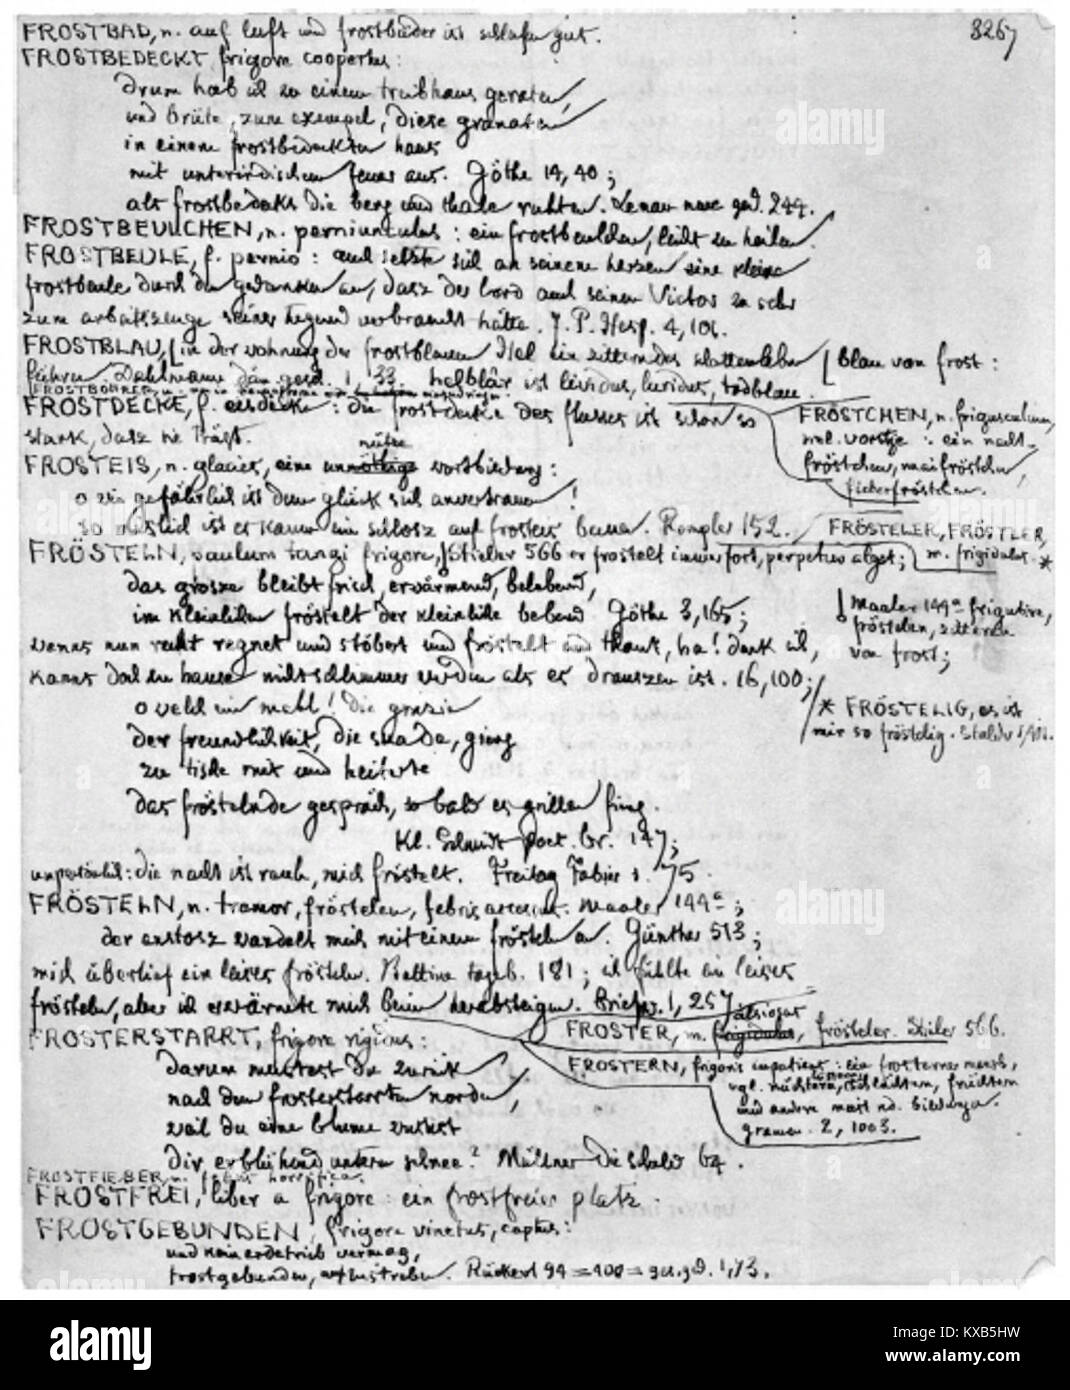 3267
FROSTBAD, n. auf luft und frostbäder ist schlafen gut.
FROSTBEDECKT, frigore coopertus:
drum hab ich in einem treibhaus gerathen,
und brüte, zum exempel, diese granaten
in einem frostbedeckten haus
mit unterirdischem feuer aus. Göthe 14, 40;
als frostbedeckt die berg und thale ruhten. Lenau neue ged. 244.
FROSTBEULCHEN, n. perniunculus: ein frostbeulchen, leicht zu heilen.
FROSTBEULE, f. pernio: auch setzte sich an seinem herzen eine kleine
frostbeule durch den gedanken an, dasz der lord auch seinen Victor zu sehr
zum arbeitszeuge seiner tugend verbraucht hätte. J. P. Hesp. 4, 101.
FROSTBLAU, [in der wohnung der frostblauen Hel ein zitterndes schattenleben
[blau von frost:
führen. Dahlmann dän. gesch. 1, 33. helblâr ist lividus, luridus, todblau.
FROSTBOHRER, n.
FROSTDECKE, f. eisdecke: die frostdecke des flusses ist schon so
stark, dasz sie trägt.
FRÖSTCHEN, n. frigusculum,
vgl. vorstže: ein nacht-
fröstchen, maifröstchen,
fieberfröstchen.
nütze
FROSTEIS, n. glacies, eine unnöthige wortbildung:
o wie gefährlich ist dem glück sich anvertrauen!
so mislich ist es kaum ein schlosz auf frosteis bauen. Rompler 152.
FRÖSTELER, FRÖSTLER,
m. frigidulus. *
FRÖSTELN, paulum tangi frigore, Stieler 566 er fröstelt immerfort, perpetuo alget;
! Maaler 144a frigutire,
fröstelen, zitteren
von frost;
das grosze bleibt frisch, erwärmend, belebend,
im kleinlichen fröstelt der kleinliche bebend. Göthe 3, 165;
wenns nun recht regnet und stöbert und fröstelt und thaut, ha! denk ich,
kanns doch zu hause nicht schlimmer werden als es drauszen ist. 16, 100;
* FRÖSTELIG, es ist
mir so fröstelig. Stalder 1, 401.
o welch ein mahl! die grazie
der freundlichkeit, die suada, gieng
zu tische mit und heiterte
das fröstelnde gespräch, so bald es grillen fing.
Kl. Schmidt poet. br. 147;
unpersönlich: die nacht ist rauh, mich fröstelt. Freitag Fabier s. 75.
FRÖSTELN, n. tremor, fröstelen, febris accessus. Maaler 144a;
der anstosz wandelt mich mit einem frösteln an. Günther 513;
mich überlief ein leises frösteln. Bettine tageb. 181; ich fühlte ein leises
frösteln, aber ich erwärmte mich beim herabsteigen. Briefw. 1, 257.
alsiosus
FROSTER, m. frigidulus, frösteler. Stieler 566.
FROSTERN, frigoris impatiens: ein frosterner mensch,
vgl. nüchtern, schüchtern,
und andere mehr nd. bildungen.
gramm. 2, 1003.
FROSTERSTARRT, frigore rigidus:
darum musztest du zurück
nach dem frosterstarrten norden,
weil du eine blume wusztest
dir erblühend unterm schnee? Müllner die schuld 64.
FROSTFIEBER, n. febris horrifica.
FROSTFREI, liber a frigore: ein frostfreier platz.
FROSTGEBUNDEN, frigore vinctus, captus:
und kein erdetrieb vermag,
frostgebunden, aufzustreben. Rückert 94 = 400 = ges. ged. 1, 73.
alamy
Image ID: KXB5HW
www.alamy.com